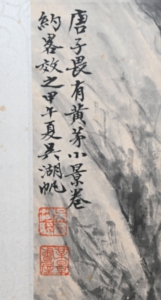 唐子畏有黃茅小景卷
約畧效之甲午夏吳湖帆